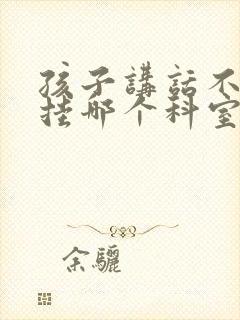 孩子講話不
挂哪个科室
余驪